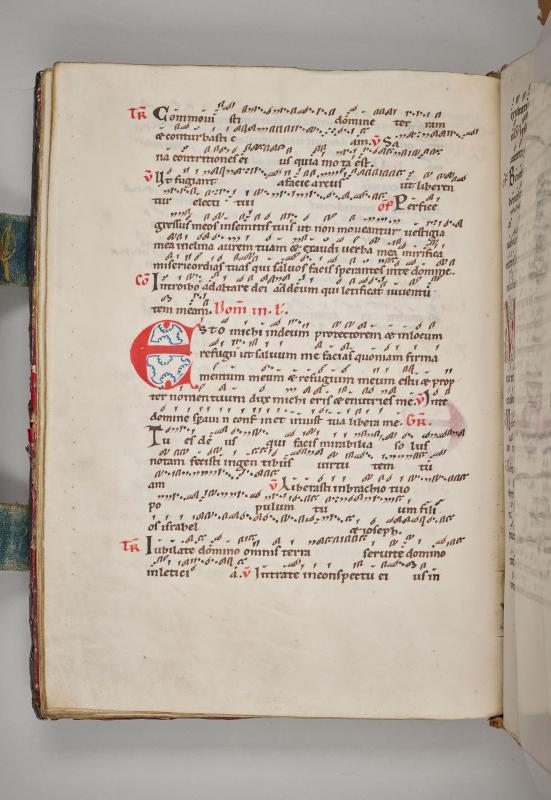 TR Commoui sti domine ter ram
& conturbasti e am. V Sa
na contritiones ei us quia mota est.
V Ut fugiant a facie arcus ut liberen
tur electi tui OF Perfice
gressus meos in semitis tuis ut non moueantur uestigia
mea inclina aurem tuam & exaudi uerba mea mirifica
misericordias tuas qui saluos facis sperantes in te domine.
CO Introibo ad altare dei ad deum qui letificat iuuentu
tem meam. Dom̄ in .L.
Esto michi in deum protectorem & in locum
refugii ut saluum me facias quoniam firma
mentum meum & refugium meum es tu & prop
ter nomen tuum dux michi eris & enutries me. V In te
domine speraui n̄ conf in et in iust tua libera me. GR̄.
Tu es de us qui facis mirabilia so lus
notam fecisti in gen tibus uirtu tem tu
am V Liberasti in brachio tuo
po pulum tu um fili
os israhel & ioseph.
TR Iubilate domino omnis terra seruite domino
in letici a. V Intrate in conspectu ei us in